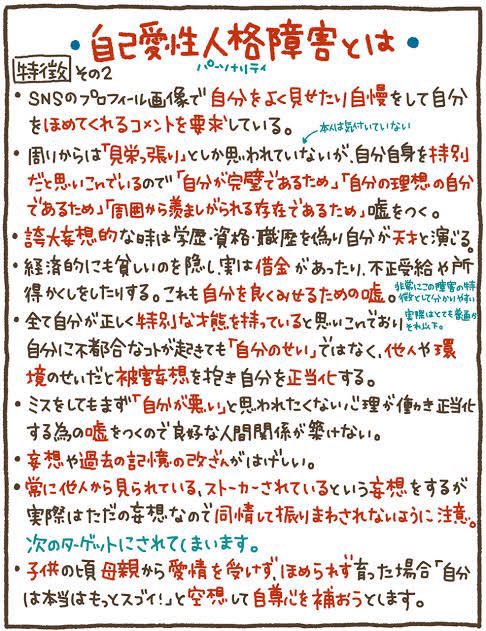 ・自己愛性人格障害とは・
パーソナリティ
特徴 その2
・SNSのプロフィール画像で自分をよく見せたり自慢をして自分
をほめてくれるコメントを要求している。
本人は気付いていない
・周りからは「見栄っ張り」としか思われていないが、自分自身を特別
だと思いこんでいるので「自分が完璧であるため」「自分の理想の自分
であるため」「周囲から羨ましがられる存在であるため」嘘をつく。
・誇大妄想的な時は学歴・資格・職歴を偽り自分が天才と演じる。
・経済的にも貧しいのを隠し、実は借金があったり、不正受給や所
得かくしをしたりする。これも自分を良くみせるための嘘。
非常にこの障害の特
徴として分かりやすい
実際はとても普通か
それ以下。
・全て自分が正しく特別な才能を持っていると思いこんでおり
自分に不都合なコトが起きても「自分のせい」ではなく、他人や環
境のせいだと被害妄想を抱き自分を正当化する。
・ミスをしてもまず「自分が悪い」と思われたくない心理が働き正当化
する為の嘘をつくので良好な人間関係が築けない。
・妄想や過去の記憶の改ざんがはげしい。
・常に他人から見られている、ストーカーされているという妄想をするが
実際はただの妄想なので同情して振りまわされないように注意。
次のターゲットにされてしまいます。
・子供の頃母親から愛情を受けず、ほめられず育った場合「自分
は本当はもっとスゴイ!」と空想して自尊心を補おうとします。